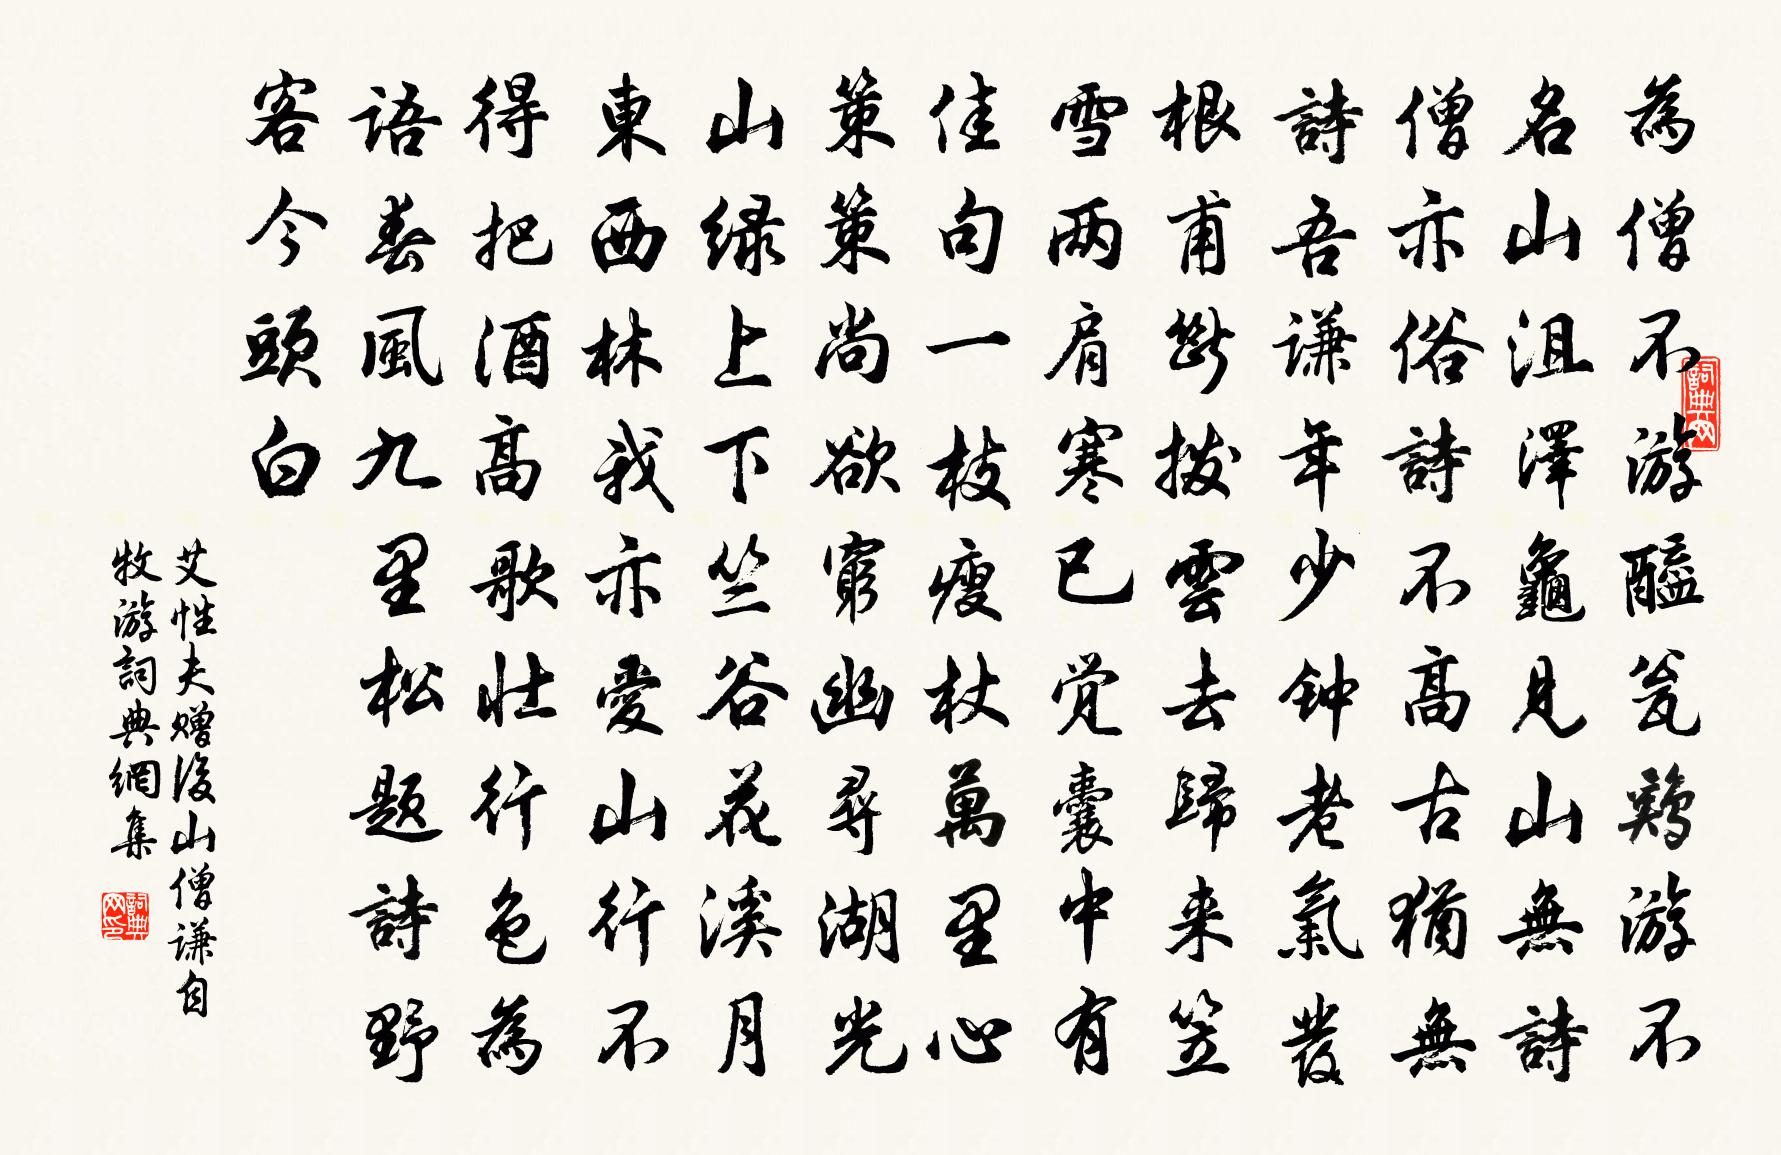 為僧不游醯瓮鷄游不
名山沮澤龜見山無詩
僧亦俗詩不高古猶無
詩吾谦年少钟老氣發
根甫斷拨雲去歸来笠
雪两肩寒已觉囊中有
佳句一枝瘦杖萬里心
策策尚欲窮幽尋湖光
山绿上下竺谷花溪月
東西林我亦愛山行不
得把酒高歌壮行色為
語春風九里松题詩野
客今頭白
艾性夫赠後山僧谦自
牧游詞典網集
詞典网
詞典网印